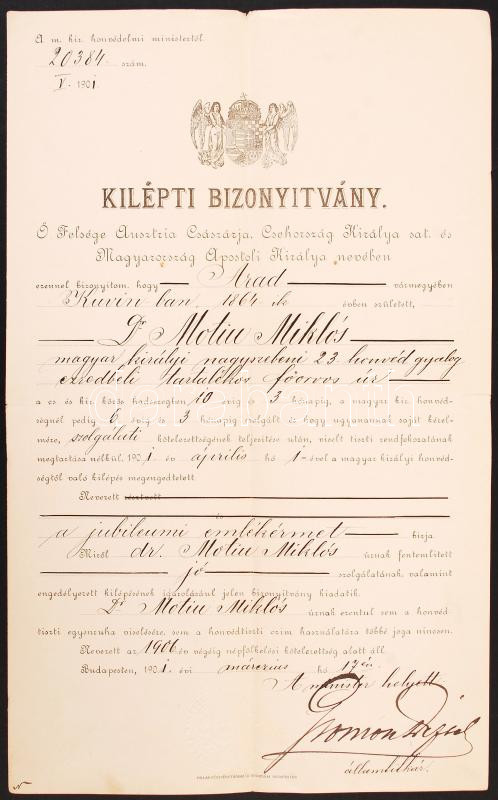 A m. kir. honvédelmi ministertől.
20384. szám.
V. 1901.
KILÉPTI BIZONYITVÁNY.
Ő Felsége Ausztria Császárja, Csehország Királya sat. és
Magyarország Apostoli Királya nevében
ezennel bizonyitom, hogy Arad vármegyében
Kuvin-ban, 1864 ik évben született,
Dr. Motiu Miklós
magyar királyi nagyszebeni 23. honvéd gyalog
ezredbéli tartalékos főorvos úr
a cs és kir. közös hadseregben 10 évig 3 hónapig, a magyar kir. honvéd-
ségnél pedig 6 évig és 3 hónapig szolgált és hogy ugyanannak saját kérel-
mére, szolgálati kötelezettségének teljesitése után, viselt tiszti rendfokozatának
megtartása nélkül, 1901. év április hó 1-ével a magyar királyi honvéd-
ségtől való kilépés megengedtetett.
Nevezett résztvett
és
a jubileumi emlékérmet birja.
Miről dr. Motiu Miklós úrnak fentemlitett
jó szolgálatának, valamint
engedélyezett kilépésének igazolásául jelen bizonyitvány kiadatik.
Dr. Motiu Miklós úrnak ezentul sem a honvéd
tiszti egyenruha viselésére, sem a honvédtiszti czim használatára többé joga nincsen.
Nevezett az 1906 év végéig népfölkelési kötelezettség alatt áll.
Budapesten, 1901. évi márczius hó 17-én.
A minister helyett
Gromon Dezső
államtitkár.